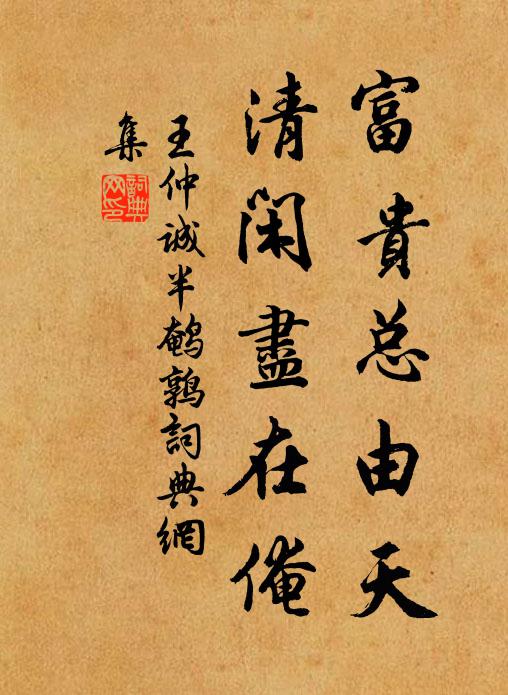 富貴总由天
清闲盡在俺
王仲诚半鹌鹑詞典網
集
詞典网印